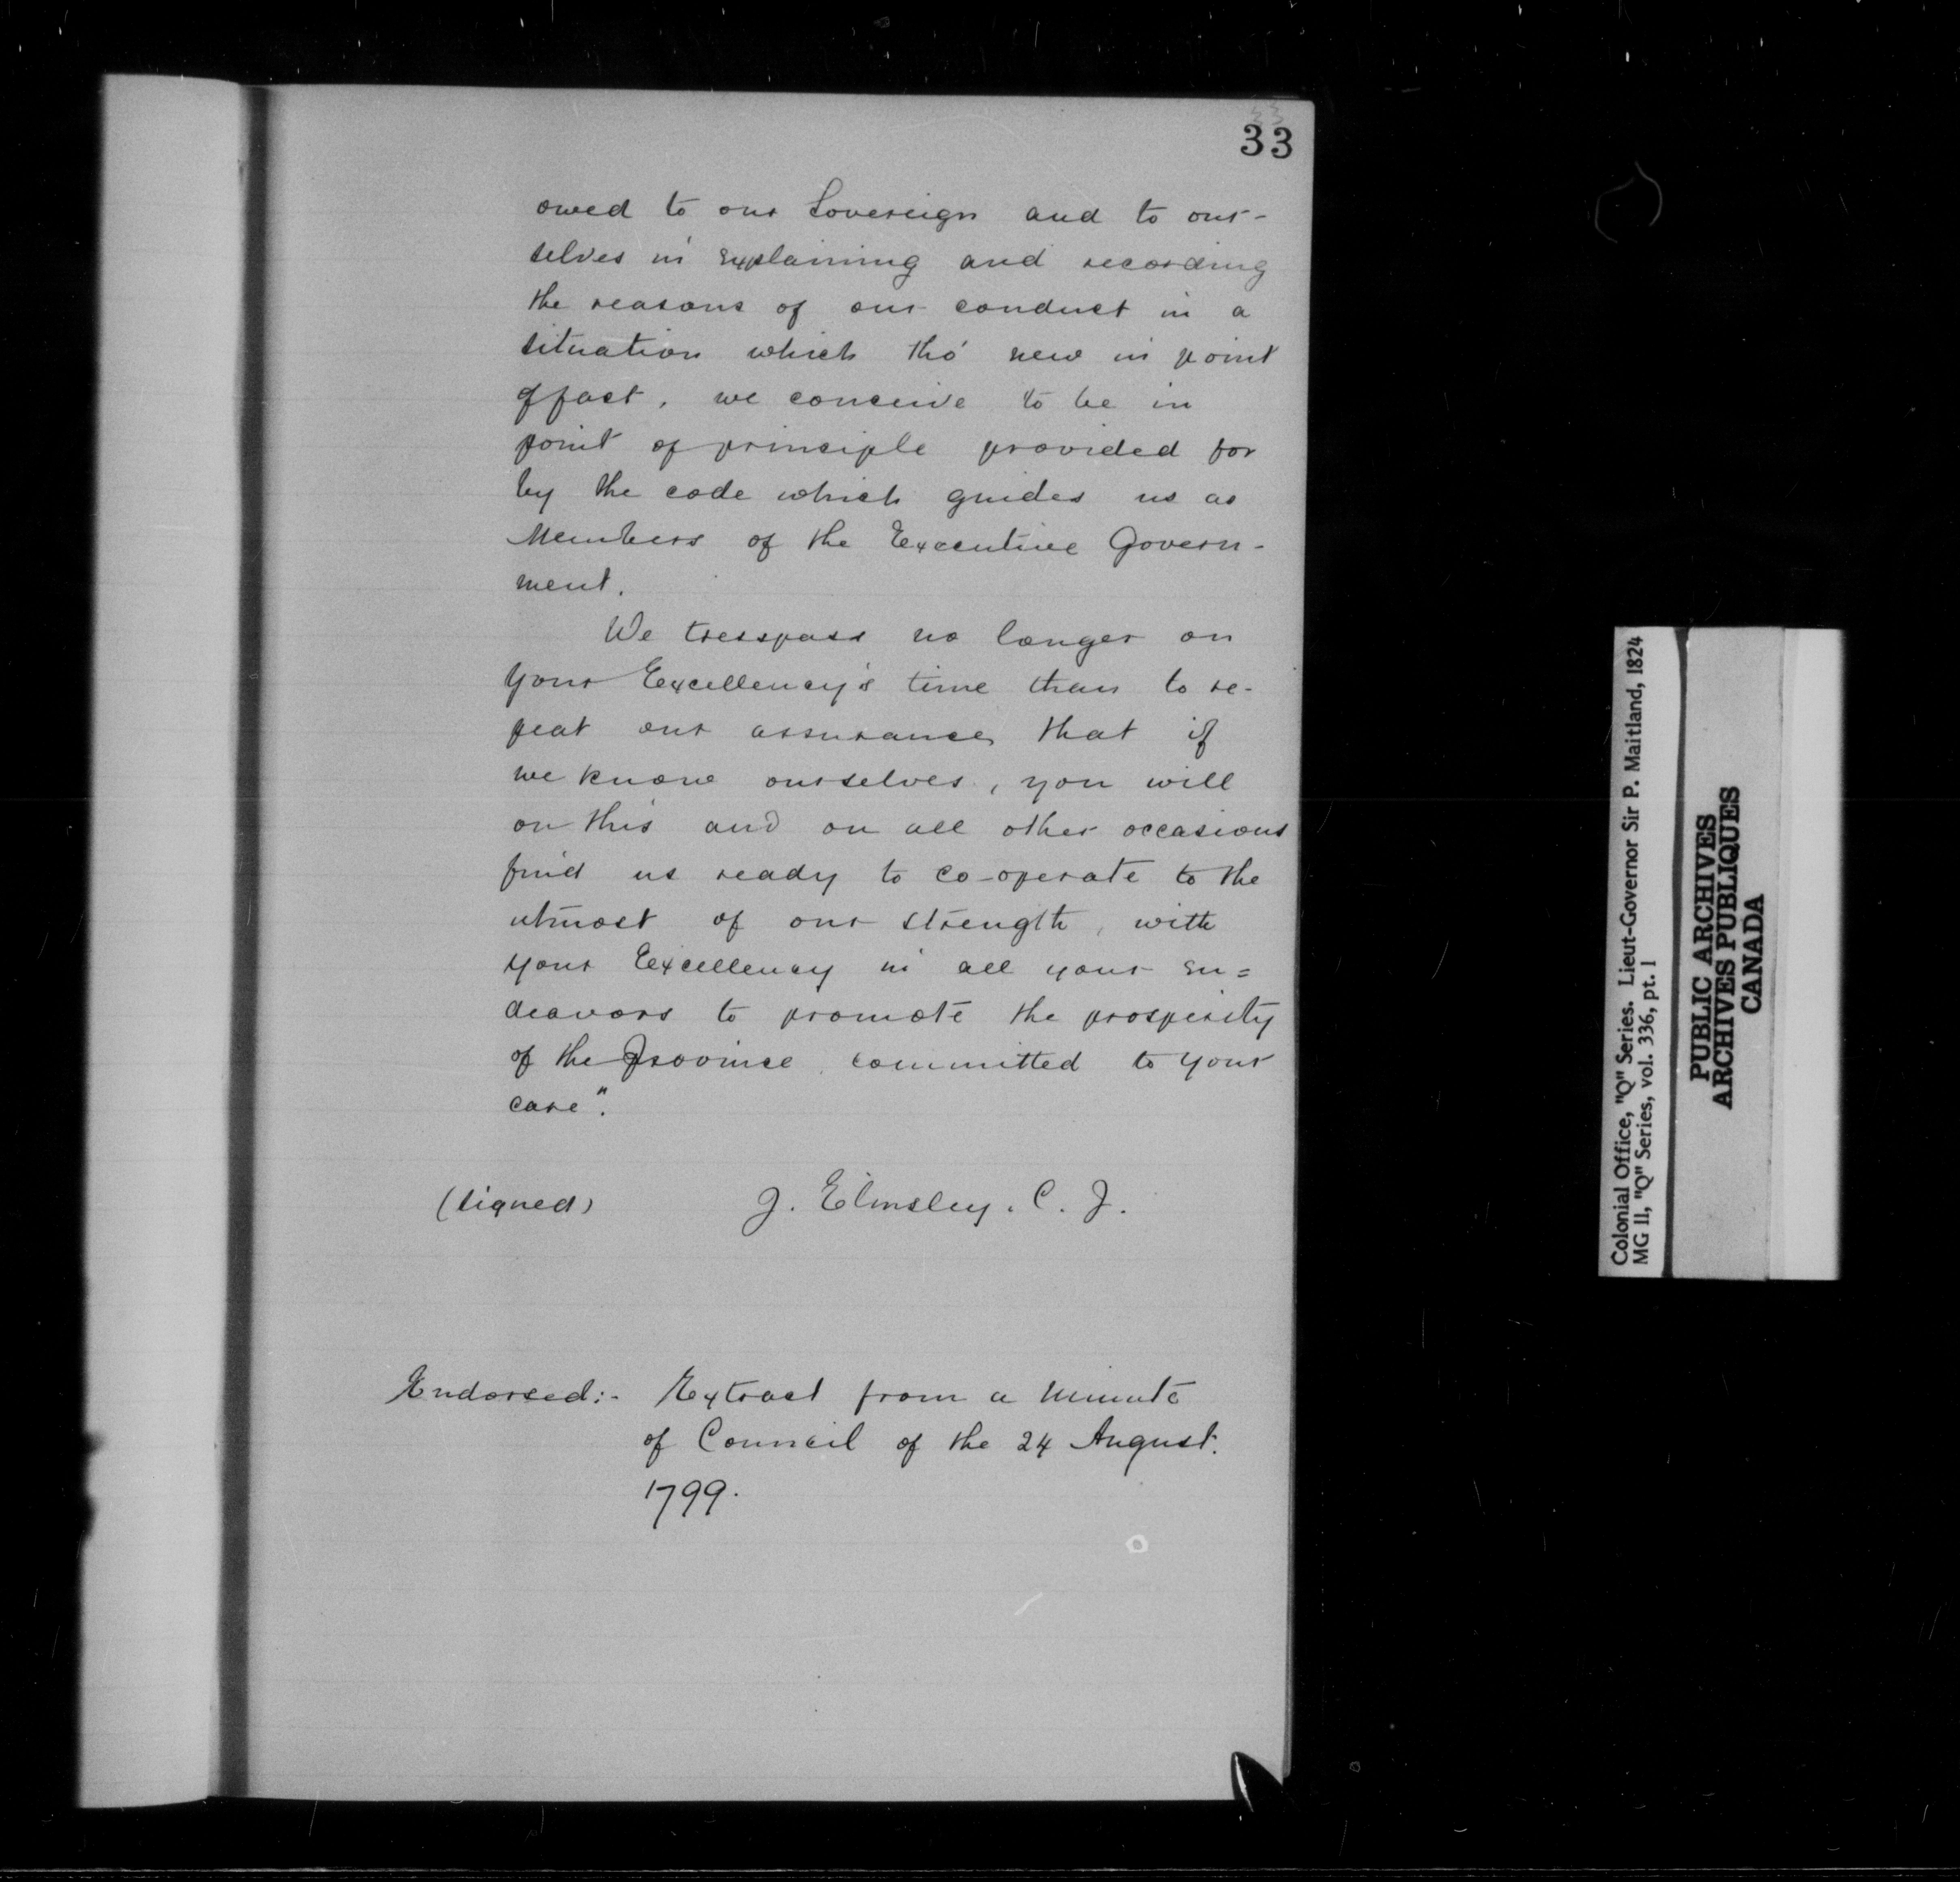 33
33
owed to our Sovereign and to our-
selves in explaining and recording
the reasons of our conduct in a
situation which tho' new in point
of fact, we conceive to be in
point of principle provided for
by the code which guides us as
Members of the Executive Govern-
ment.
We tresspass no longer on
your Excellency's time than to re-
peat our assurances that if
we know ourselves, you will
on this and on all other occasions
find us ready to co-operate to the
utmost of our strength, with
your Excellency in all your en=
deavors to promote the prosperity
of the Province committed to your
care".
(signed) J. Elmsley. C. J.
Endorsed:- Extract from a Minute
of Council of the 24 August.
1799.
Colonial Office, "Q" Series. Lieut-Governor Sir P. Maitland, 1824
MG 11, "Q" Series, vol. 336, pt. 1
PUBLIC ARCHIVES
ARCHIVES PUBLIQUES
CANADA